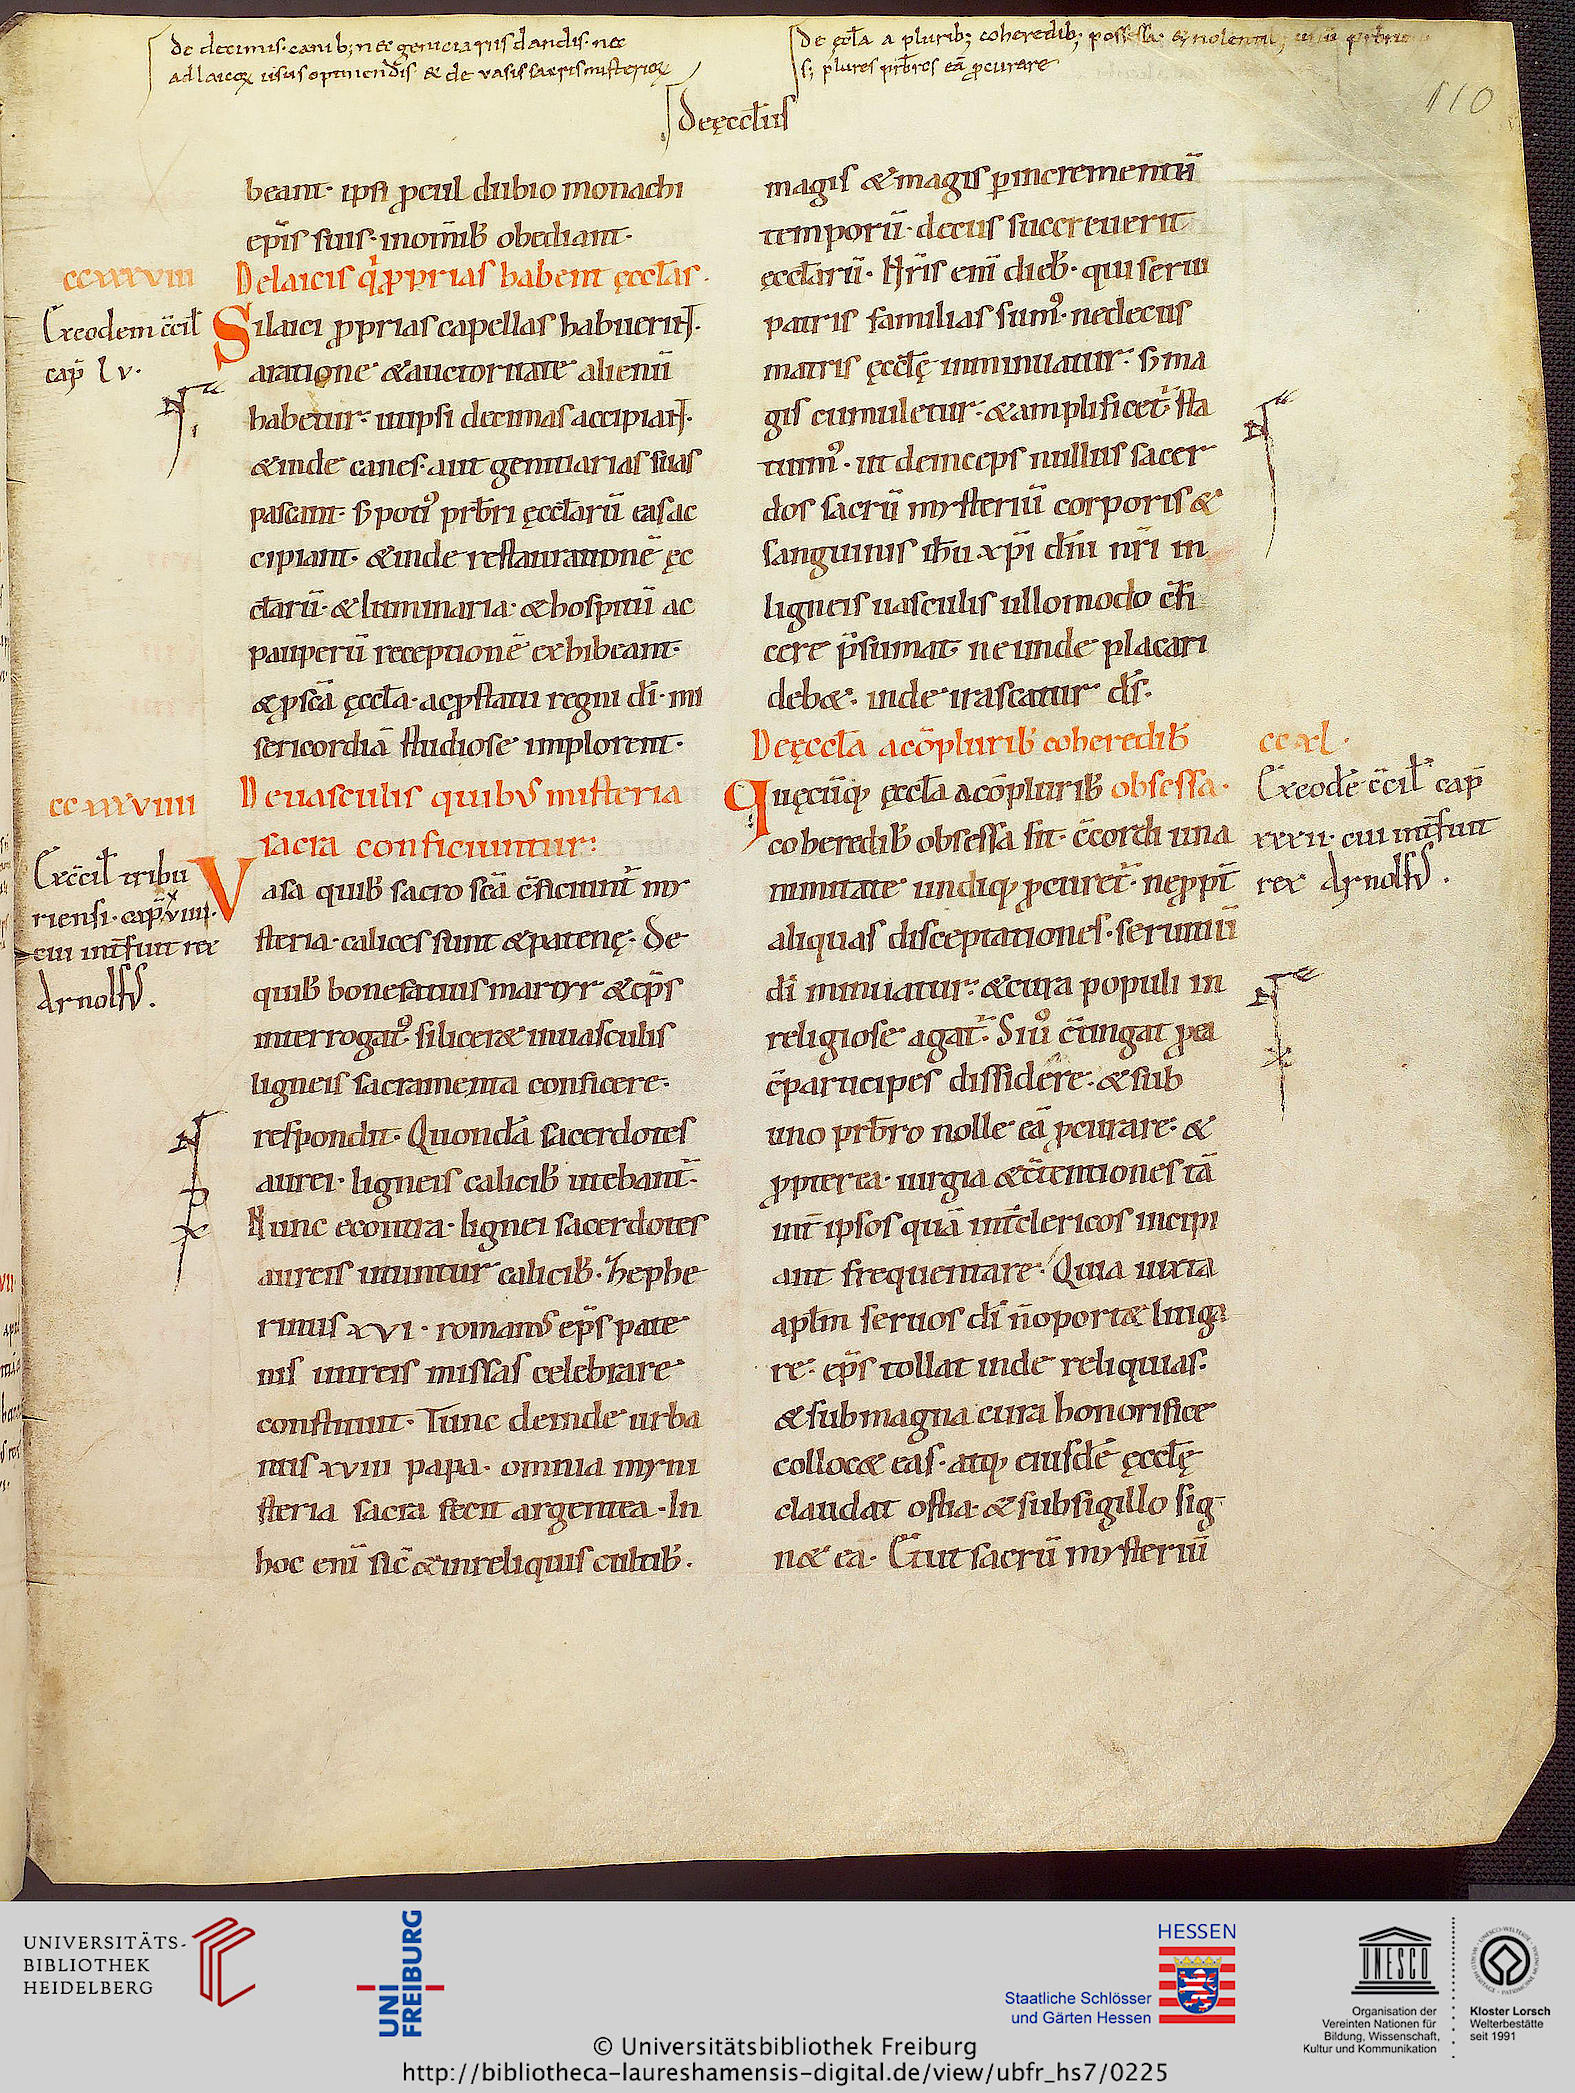 de decimis canib; nec geniciariis dandis. nec
ad laicoꝝ usus optinendis & de vasis sacris misterioꝝ
De ęccła a plurib; coheredib; possessa.
s; plures prb̄res eā ꝓcurare
110
De ęcctiis
beant. ipsi ꝓcul dubio monachi
ep̄is suis. in om̄ib; obediant.
ccxxxviii
De laicis qͥ ꝓprias habent ęccłas.
Ex eodem c̄cil̄
cap̄ lv.
Si laici ꝓprias capellas habuerint.
a ratione & auctoritate alienū
habetur. ut ipsi decimas accipiant.
& inde canes. aut genitiarias suas
pascant. s; potiꝰ prb̄ri ęccłarū eas ac
cipiant. & inde restaurationē ęc
cłarū. & luminaria. & hospitū ac
pauperū receptionē exhibeant.
& ꝓ sc̄a ęccła. ac ꝓ statu regni dī. mi
sericordiā studiose implorent.
ccxxxviiii
De uasculis quibus misteria
sacra conficiuntur:
Ex c̄cil̄ tribu
riensi. cap̄ xviiii.
cui int̄fuit rex
Arnolfus.
Vasa quib; sacro sc̄a c̄ficiunt᷑ my
steria. calices sunt & patenę. De
quib; bonefatius martyr & ep̄s
interrogatꝰ. si liceret in uasculis
ligneis sacramenta conficere.
respondit. Quondā sacerdotes
aurei. ligneis calicib; utebant᷑.
Nunc econtra. lignei sacerdotes
aureis utuntur calicib;. Zephe
rinus xvi. romanus ep̄s pate
nis uitreis missas celebrare
constituit. Tunc deinde urba
nus xviii papa. omnia myni
steria sacra fecit argentea. In
hoc enī sic̄ & in reliquis cultib;.
magis & magis ꝑ incrementū
temporū. decus succreuerit
ęccłarū. Nr̄is enī dieb;. qui serui
patris familias sumꝰ. ne decus
matris ęccłę inminuatur. s; ma
gis cumuletur. & amplificet᷑. sta
tuimꝰ. ut deinceps nullus sacer
dos sacrū mysteriū corporis &
sanguinis ih̄u xp̄i dn̄i nr̄i in
ligneis uasculis ullo modo c̄fi
cere p̄sumat. ne unde placari
debet. inde irascatur ds̄.
ccxl.
De ęccła a cōplurib; coheredib;
Ex eodē c̄cil̄ cap̄
xxxii. cui int̄fuit
rex Arnolfus.
Quęcūq; ęccła a cōplurib; obsessa.
coheredib; obsessa sit. c̄cordi una
nimitate undiq; ꝓcuret᷑. ne ꝓpt̄
aliquas disceptationes. seruitiū
dī minuatur. & cura populi in
religiose agat᷑. Si uͦ c̄tingat ꝓ ea
c̄participes dissidere. & sub
uno prb̄ro nolle eā ꝓcurare. &
ꝓpterea. iurgia & c̄tentiones tā
int̄ ipsos quā int̄ clericos incipi
ant frequentare. Quia iuxta
apl̄m seruos dī n̄ oportet litiga
re. ep̄s tollat inde reliquias.
& sub magna cura honorifice
collocet eas. atq; eiusdē ęccłę
claudat ostia. & sub sigillo sig
net ea. Et ut sacrū mysteriū
UNIVERSITÄTS-
BIBLIOTHEK
HEIDELBERG
UNI
FREIBURG
HESSEN
Staatliche Schlösser
und Gärten Hessen
UNESCO
Organisation der
Vereinten Nationen für
Bildung, Wissenschaft,
Kultur und Kommunikation
Kloster Lorsch
Welterbestätte
seit 1991
© Universitätsbibliothek Freiburg
http://bibliotheca-laureshamensis-digital.de/view/ubfr_hs7/0225